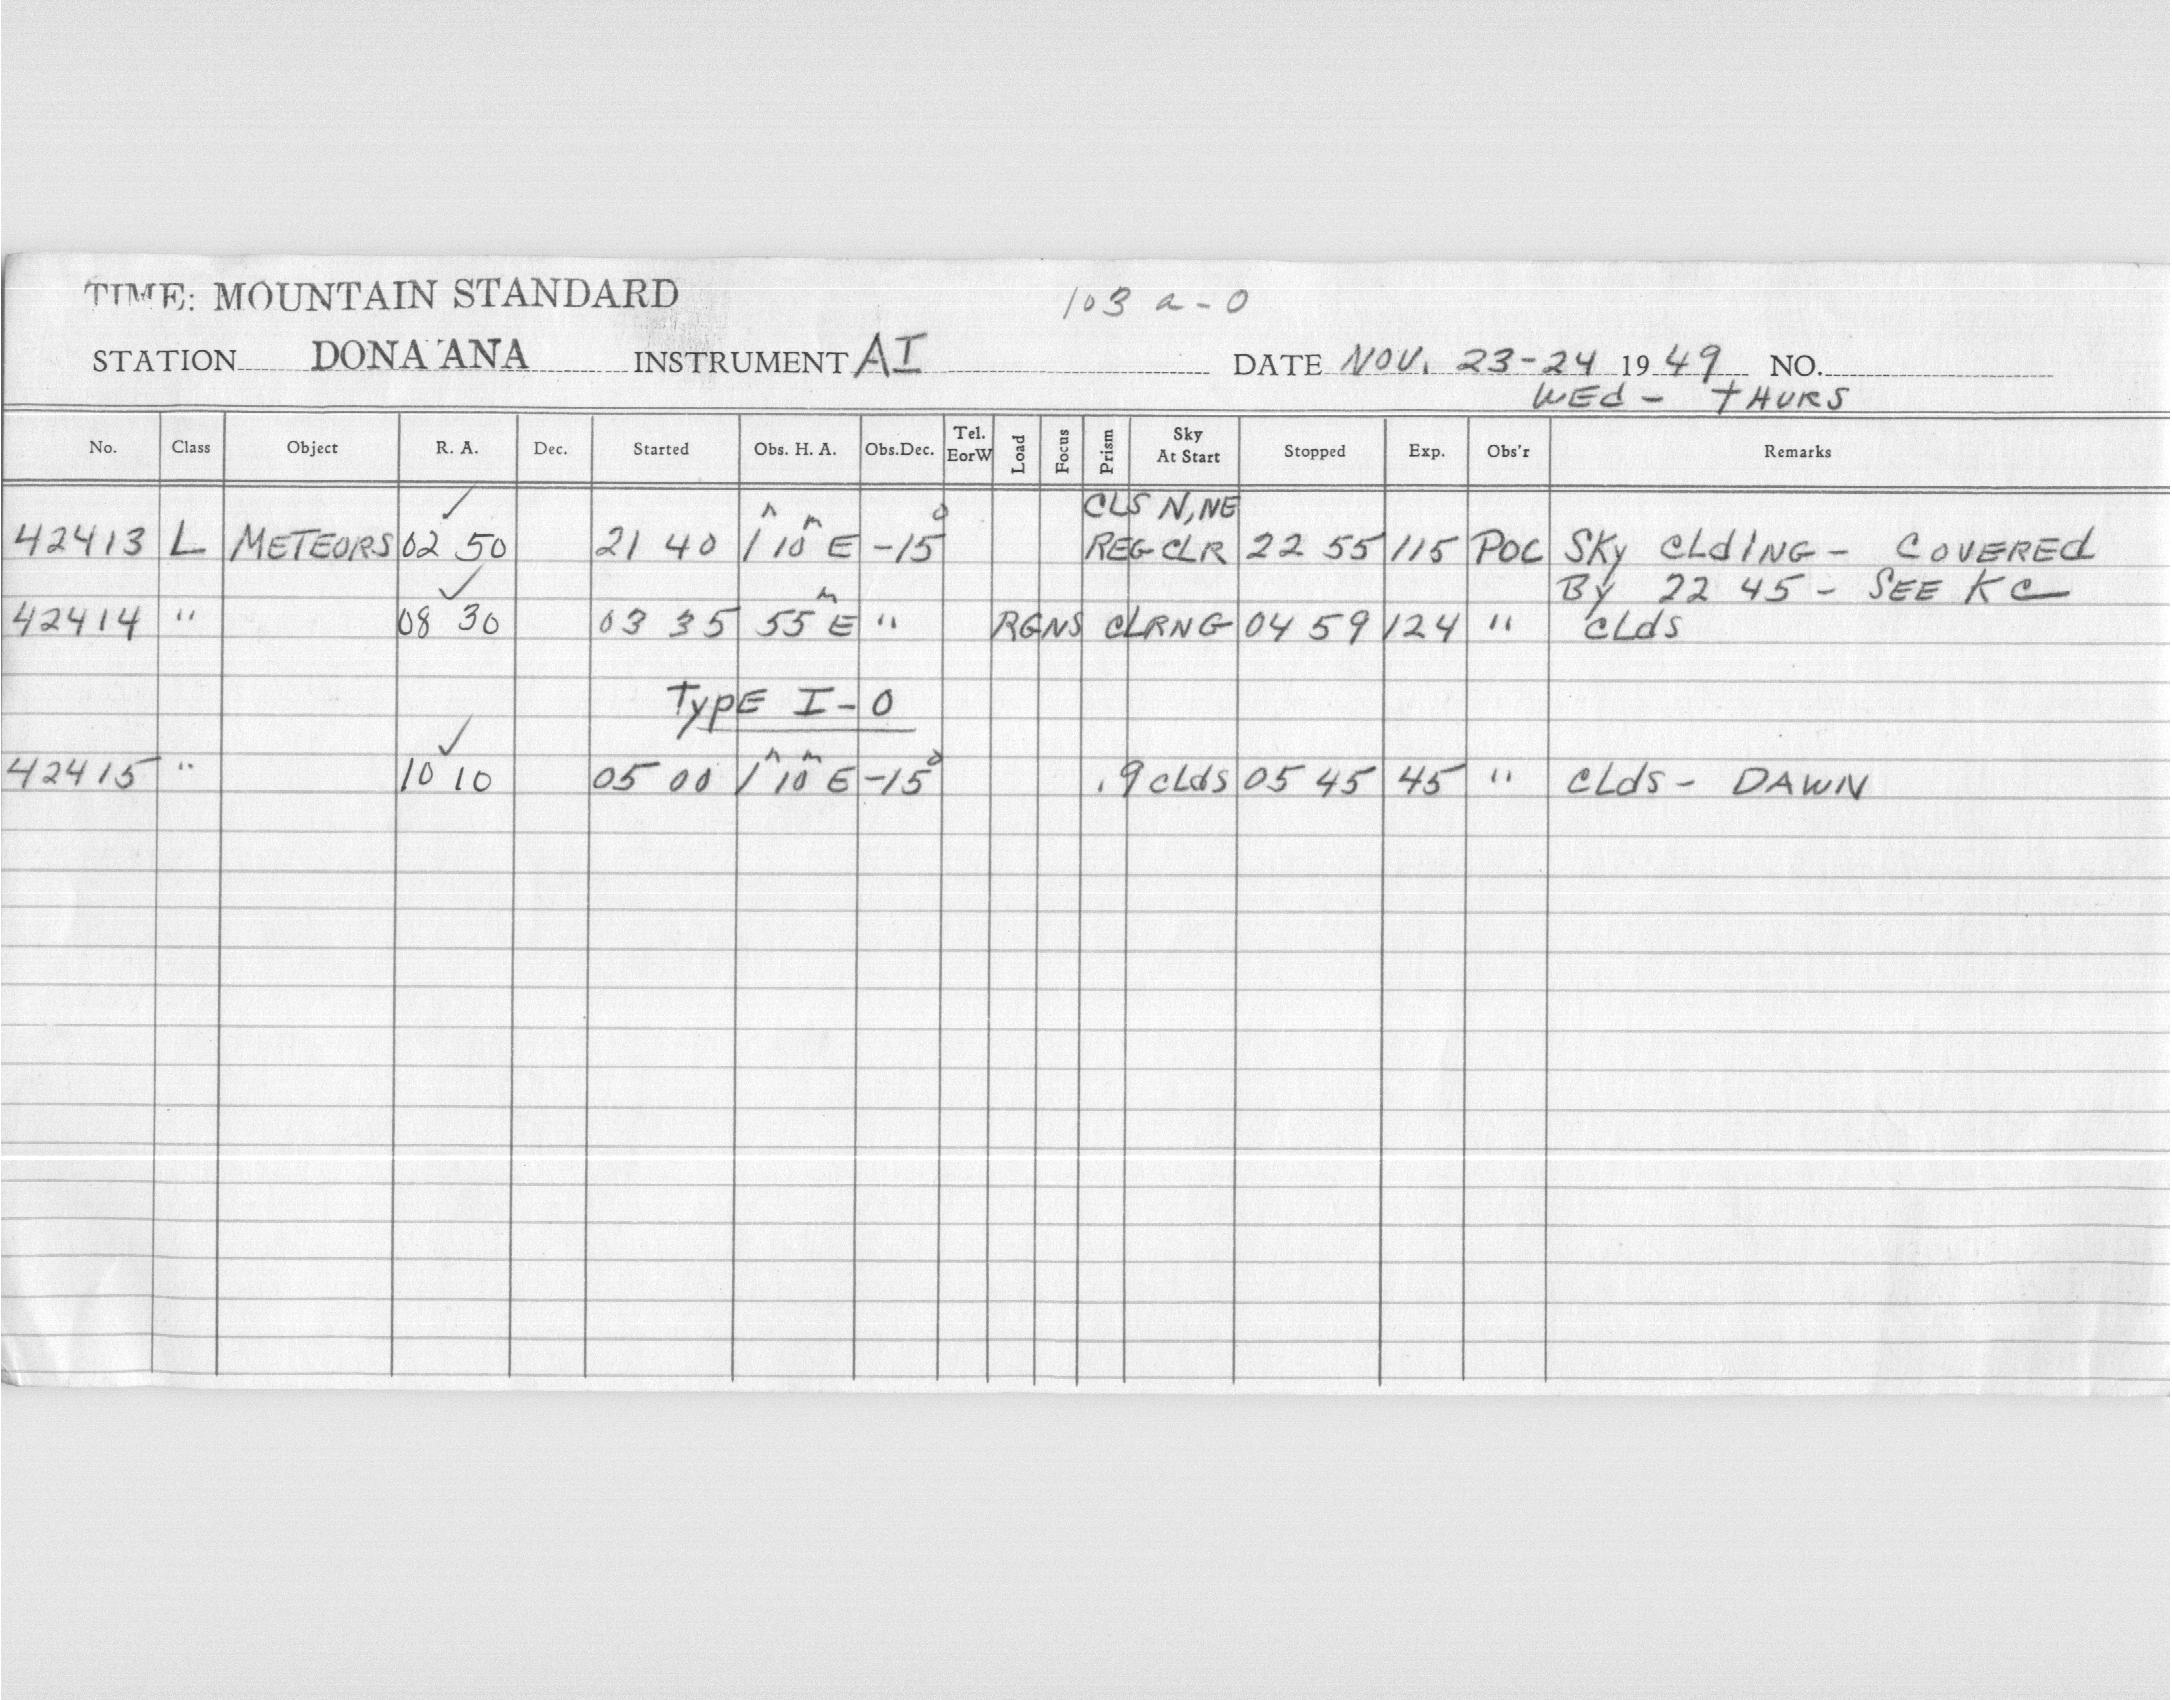 TIME: MOUNTAIN STANDARD 103 a-O
STATION DONA ANA INSTRUMENT AI DATE NOV. 23-24 1949 NO.
WEd - THURS
No. Class Object R. A. Dec. Started Obs. H. A. Obs.Dec. Tel. EorW Load Focus Prism Sky At Start Stopped Exp. Obs'r Remarks
CLS N, NE
42413 L METEORS 02 50 ✓ 21 40 1h 10m E -15° REG CLR 22 55 115 POC SKy CLdING - COVEREd
By 22 45 - SEE KC
42414 " 08 30 ✓ 03 35 55m E " RGNS CLRNG 04 59 124 " CLdS
TypE I-O
42415 " 10 10 ✓ 05 00 1h 10m E -15° .9 cLds 05 45 45 " CLdS - DAWN